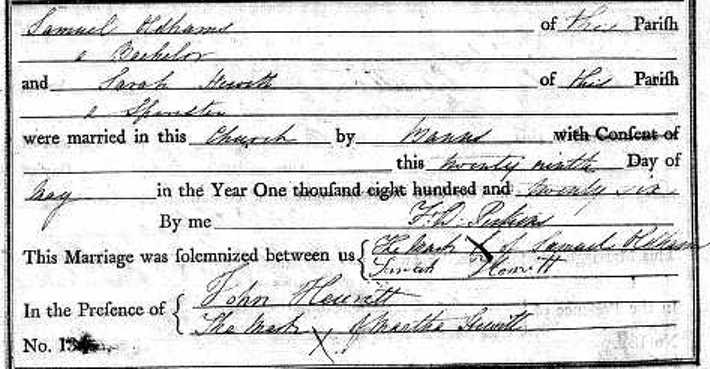 Samuel Oldhams of this Pariſh
a Bachelor
and Sarah Hewitt of this Pariſh
a Spinster
were married in this Church by Banns with Conſent of
this twenty ninth Day of
May in the Year One thouſand eight hundred and twenty six
By me F. D. Perkins
This Marriage was ſolemnized between us { The Mark X of Samuel Oldham
Sarah Hewitt
In the Preſence of { John Hewitt
The Mark X of Martha Hewitt
No.